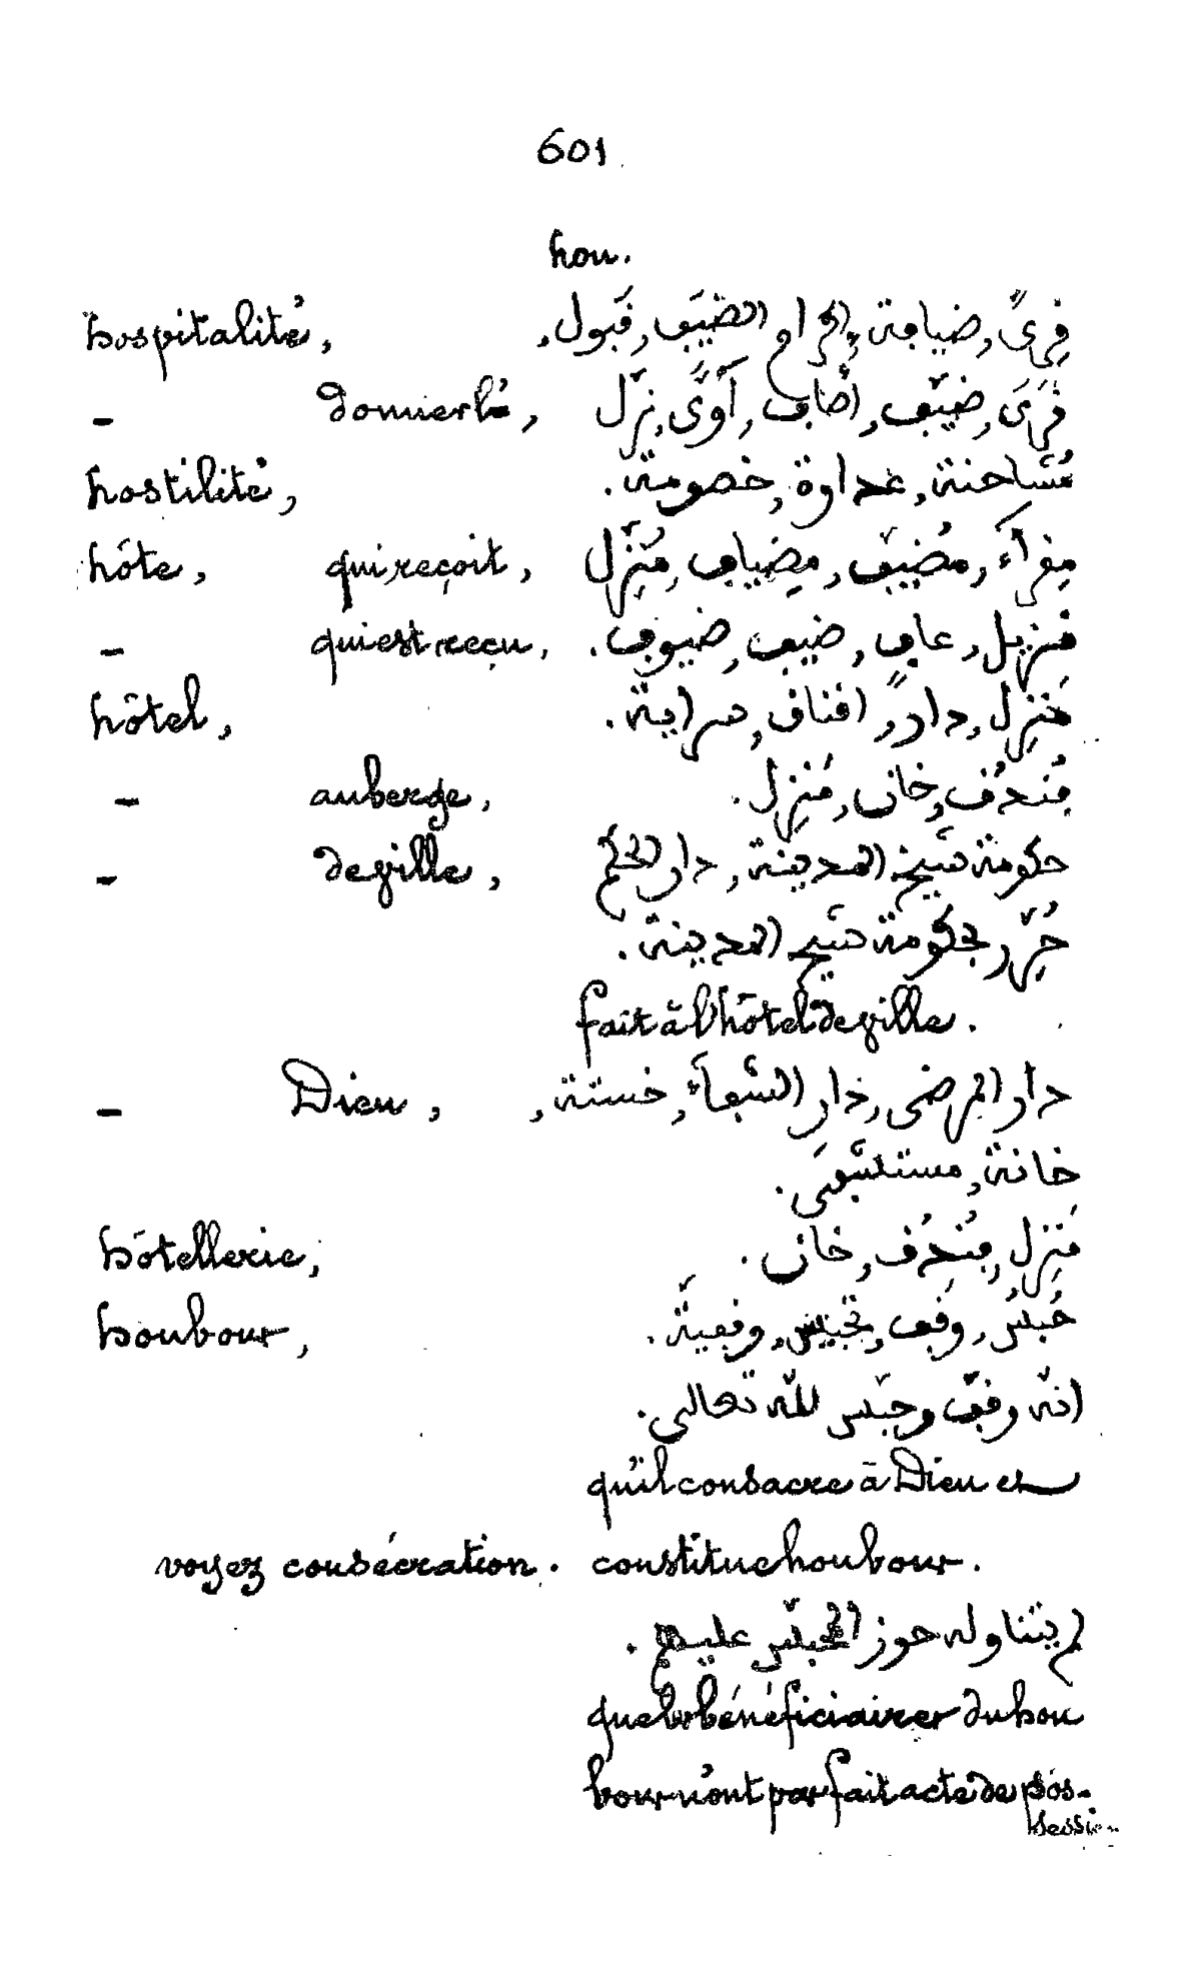 601
hou.
hospitalité, قِرىً, ضيافة, إكرام الضيَف, قَبول,
- donner l', قَرَى, ضيّف, أضاف, آوَى, نزّل
hostilité, مُشاحنة, عداوة, خصومة.
hôte, qui reçoit, مِقرآء, مُضيّف, مِضياف, مُنَزِّل
- qui est reçu, نزيل, عاف, ضيف, ضيوف.
hôtel, مَنزِل, دار, افناق, سراية.
- auberge, فُندُق, خان, مَنْزِل.
- de ville, حكومة شيخ المدينة, دار الحكم
حُرِّر بحكومة شيخ المدينة.
fait à l'hôtel de ville.
- Dieu, دار المرضى, دار الشفآء, خستة,
خانة, مستشفَى.
hôtellerie, مَنزِل, فُندُق, خان.
houbour, حُبسُ, وَقف, تحبيس, وقفيّة.
انّه وقّف وحبّس لله تعالى.
qu'il consacre à Dieu et
voyez consécration. constitue houbour.
لم يتناوله حوز المحبّس عليهم.
que les bénéficiaires du hou
bour n'ont pas fait acte de pos-
session